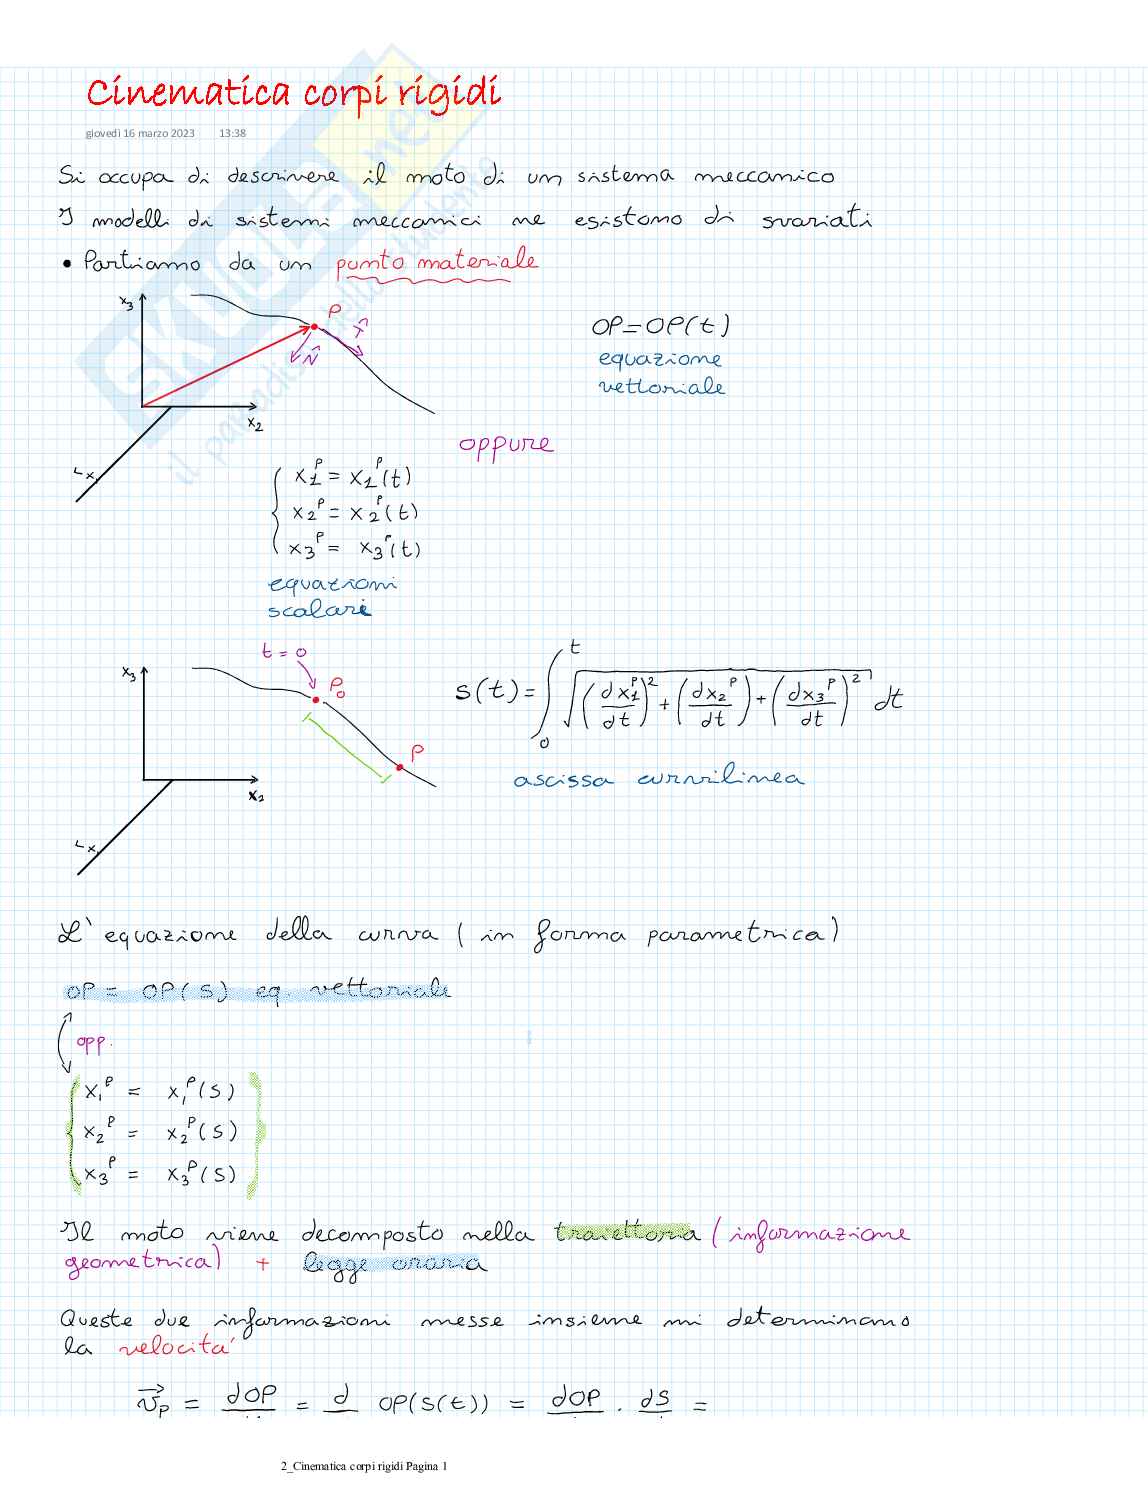 Cinematica corpi rigidi
giovedì 16 marzo 2023 13:38
Si occupa di descrivere il moto di un sistema meccanico
I modelli di sistemi meccanici ne esistono di svariati
• Partiamo da un punto materiale
x3
P
T̂
N̂
x2
x1
OP=OP(t)
equazione
vettoriale
oppure
x1^P = x1^P(t)
x2^P = x2^P(t)
x3^P = x3^P(t)
equazioni
scalari
t=0
x3
P0
P
x2
x1
s(t) = ∫_0^t √((dx1^P/dt)^2 + (dx2^P/dt) + (dx3^P/dt)^2) dt
ascissa curvilinea
L'equazione della curva (in forma parametrica)
OP = OP(s) eq. vettoriale
opp.
x1^P = x1^P(s)
x2^P = x2^P(s)
x3^P = x3^P(s)
Il moto viene decomposto nella traiettoria (informazione
geometrica) + legge oraria
Queste due informazioni messe insieme mi determinano
la velocità
v⃗_P = dOP = d OP(s(t)) = dOP · ds =
2_Cinematica corpi rigidi Pagina 1
SKUOLA.net